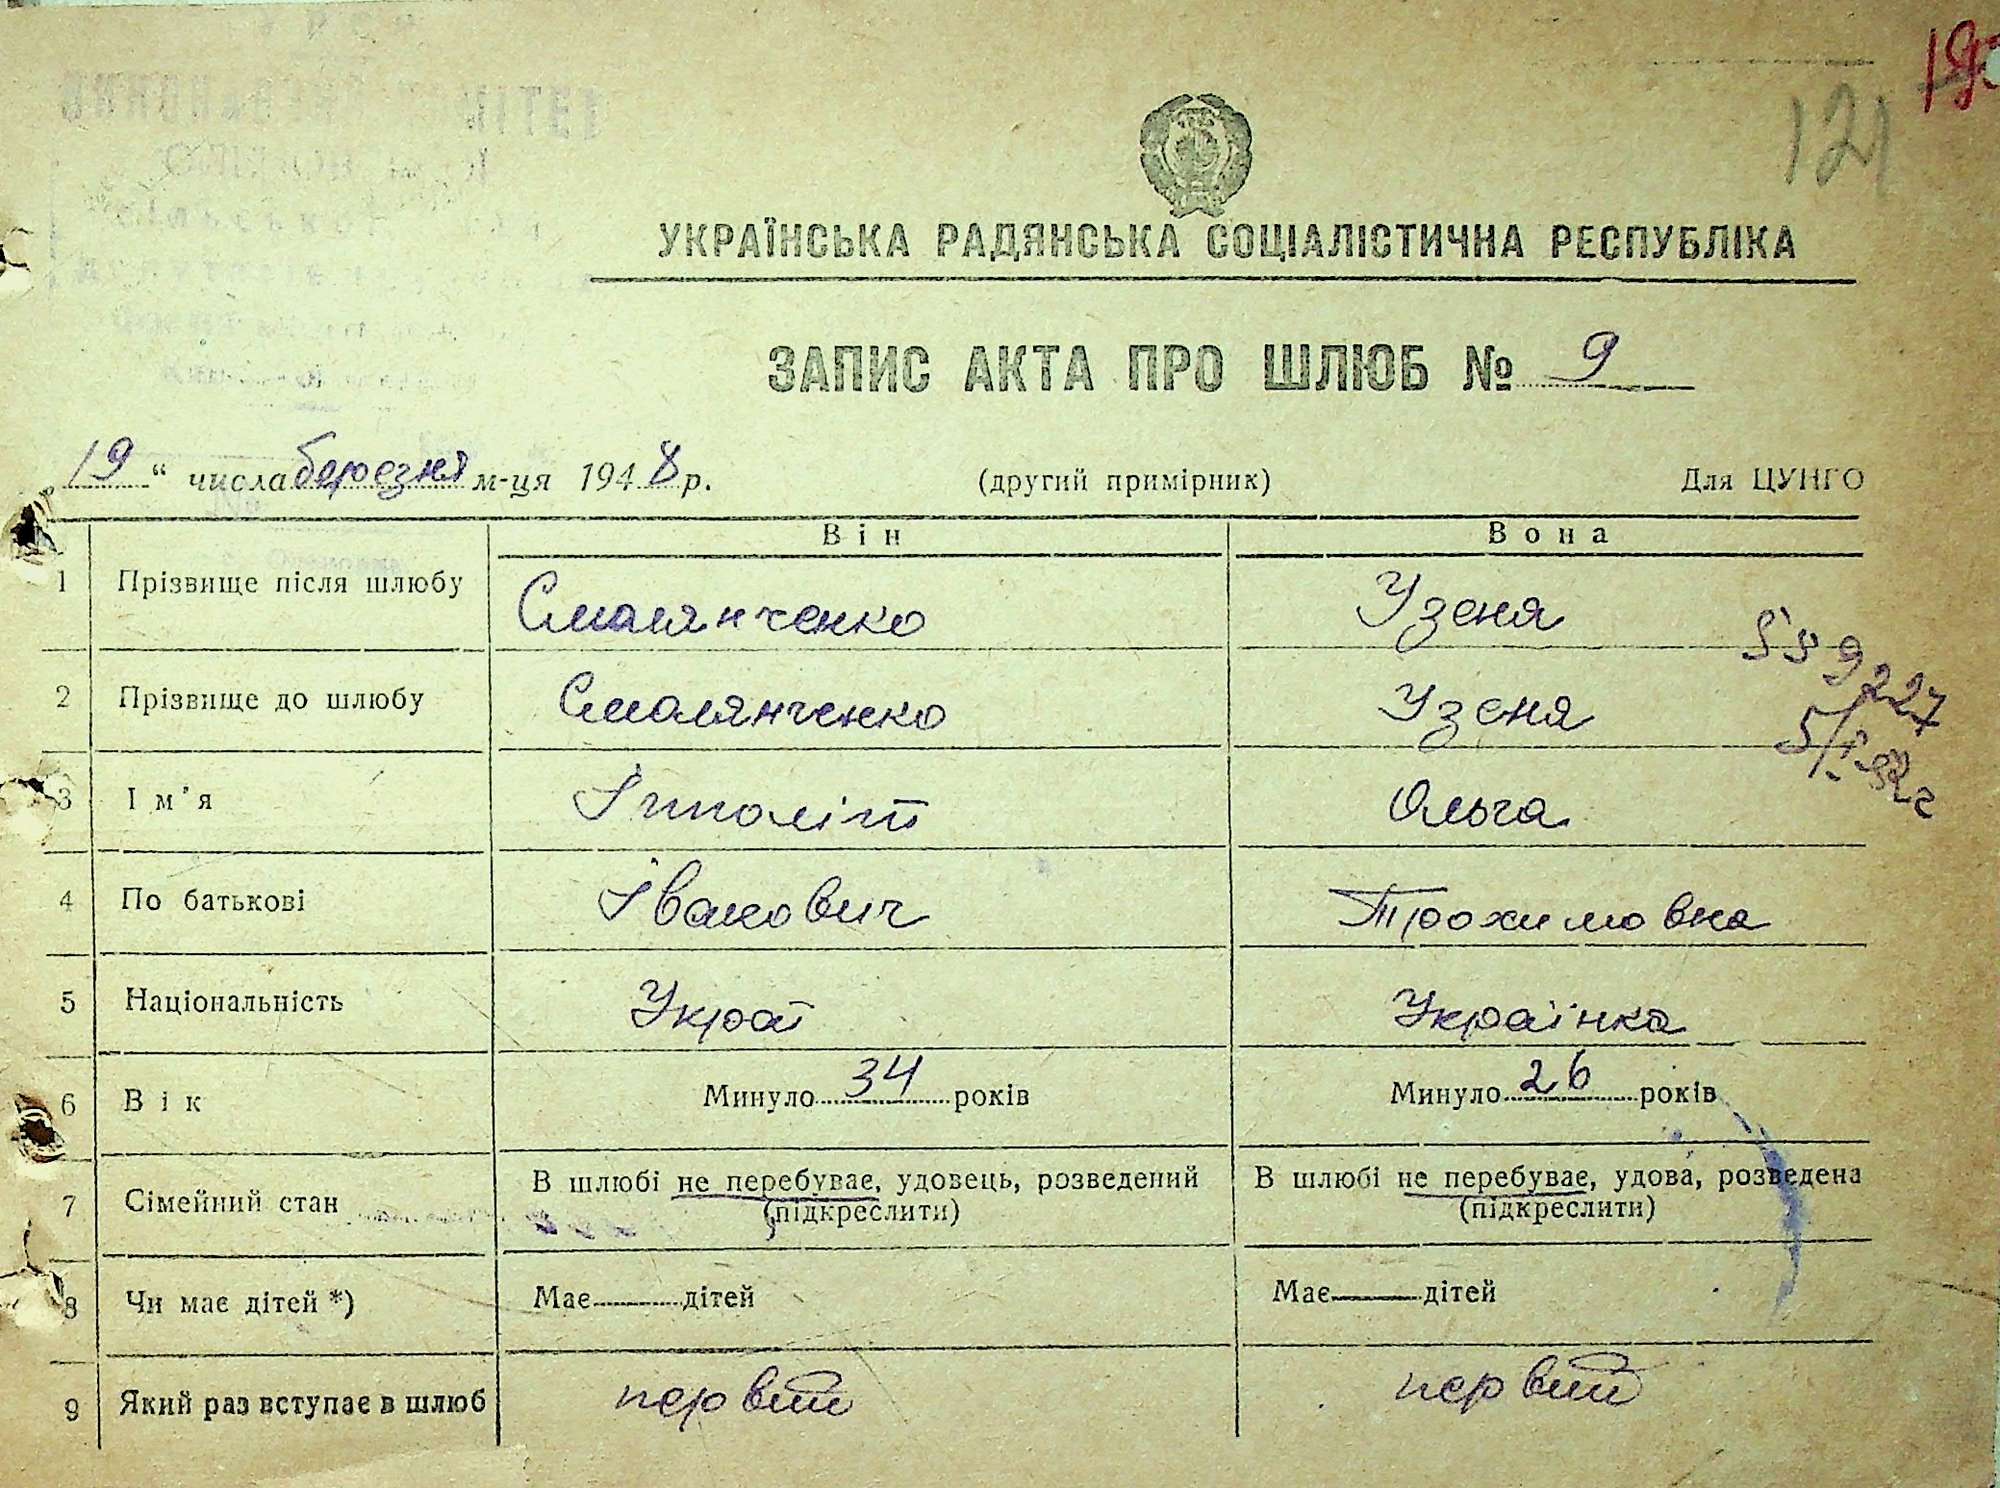 121
УКРАЇНСЬКА РАДЯНСЬКА СОЦІАЛІСТИЧНА РЕСПУБЛІКА
ЗАПИС АКТА ПРО ШЛЮБ № 9
„19“ числа березня м-ця 1948 р. (другий примірник) Для ЦУНГО
Він Вона
1 Прізвище після шлюбу Смолянченко Узеня
2 Прізвище до шлюбу Смолянченко Узеня
3 Ім'я Іпполіт Ольга
4 По батькові Іванович Трохимовна
5 Національність Украї Українка
6 Вік Минуло 34 років Минуло 26 років
7 Сімейний стан В шлюбі не перебуває, удовець, розведений (підкреслити) В шлюбі не перебуває, удова, розведена (підкреслити)
8 Чи має дітей *) Має — дітей Має — дітей
9 Який раз вступає в шлюб первий первий